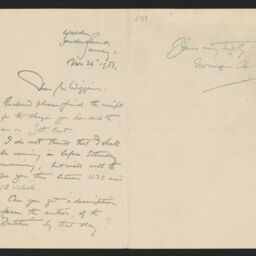 Surrey.
Nov. 26th 1907.
Dear Mr Wiggin,
Enclosed please find the receipt
for the cheque you handed to
me on Sat. last.
I do not think that I shall
be coming in before Saturday
morning, but will call to
see you then between 11.30 and
12 o'clock.
Can you get a description
from the author, of the
by that day?
639
Yours very truly,